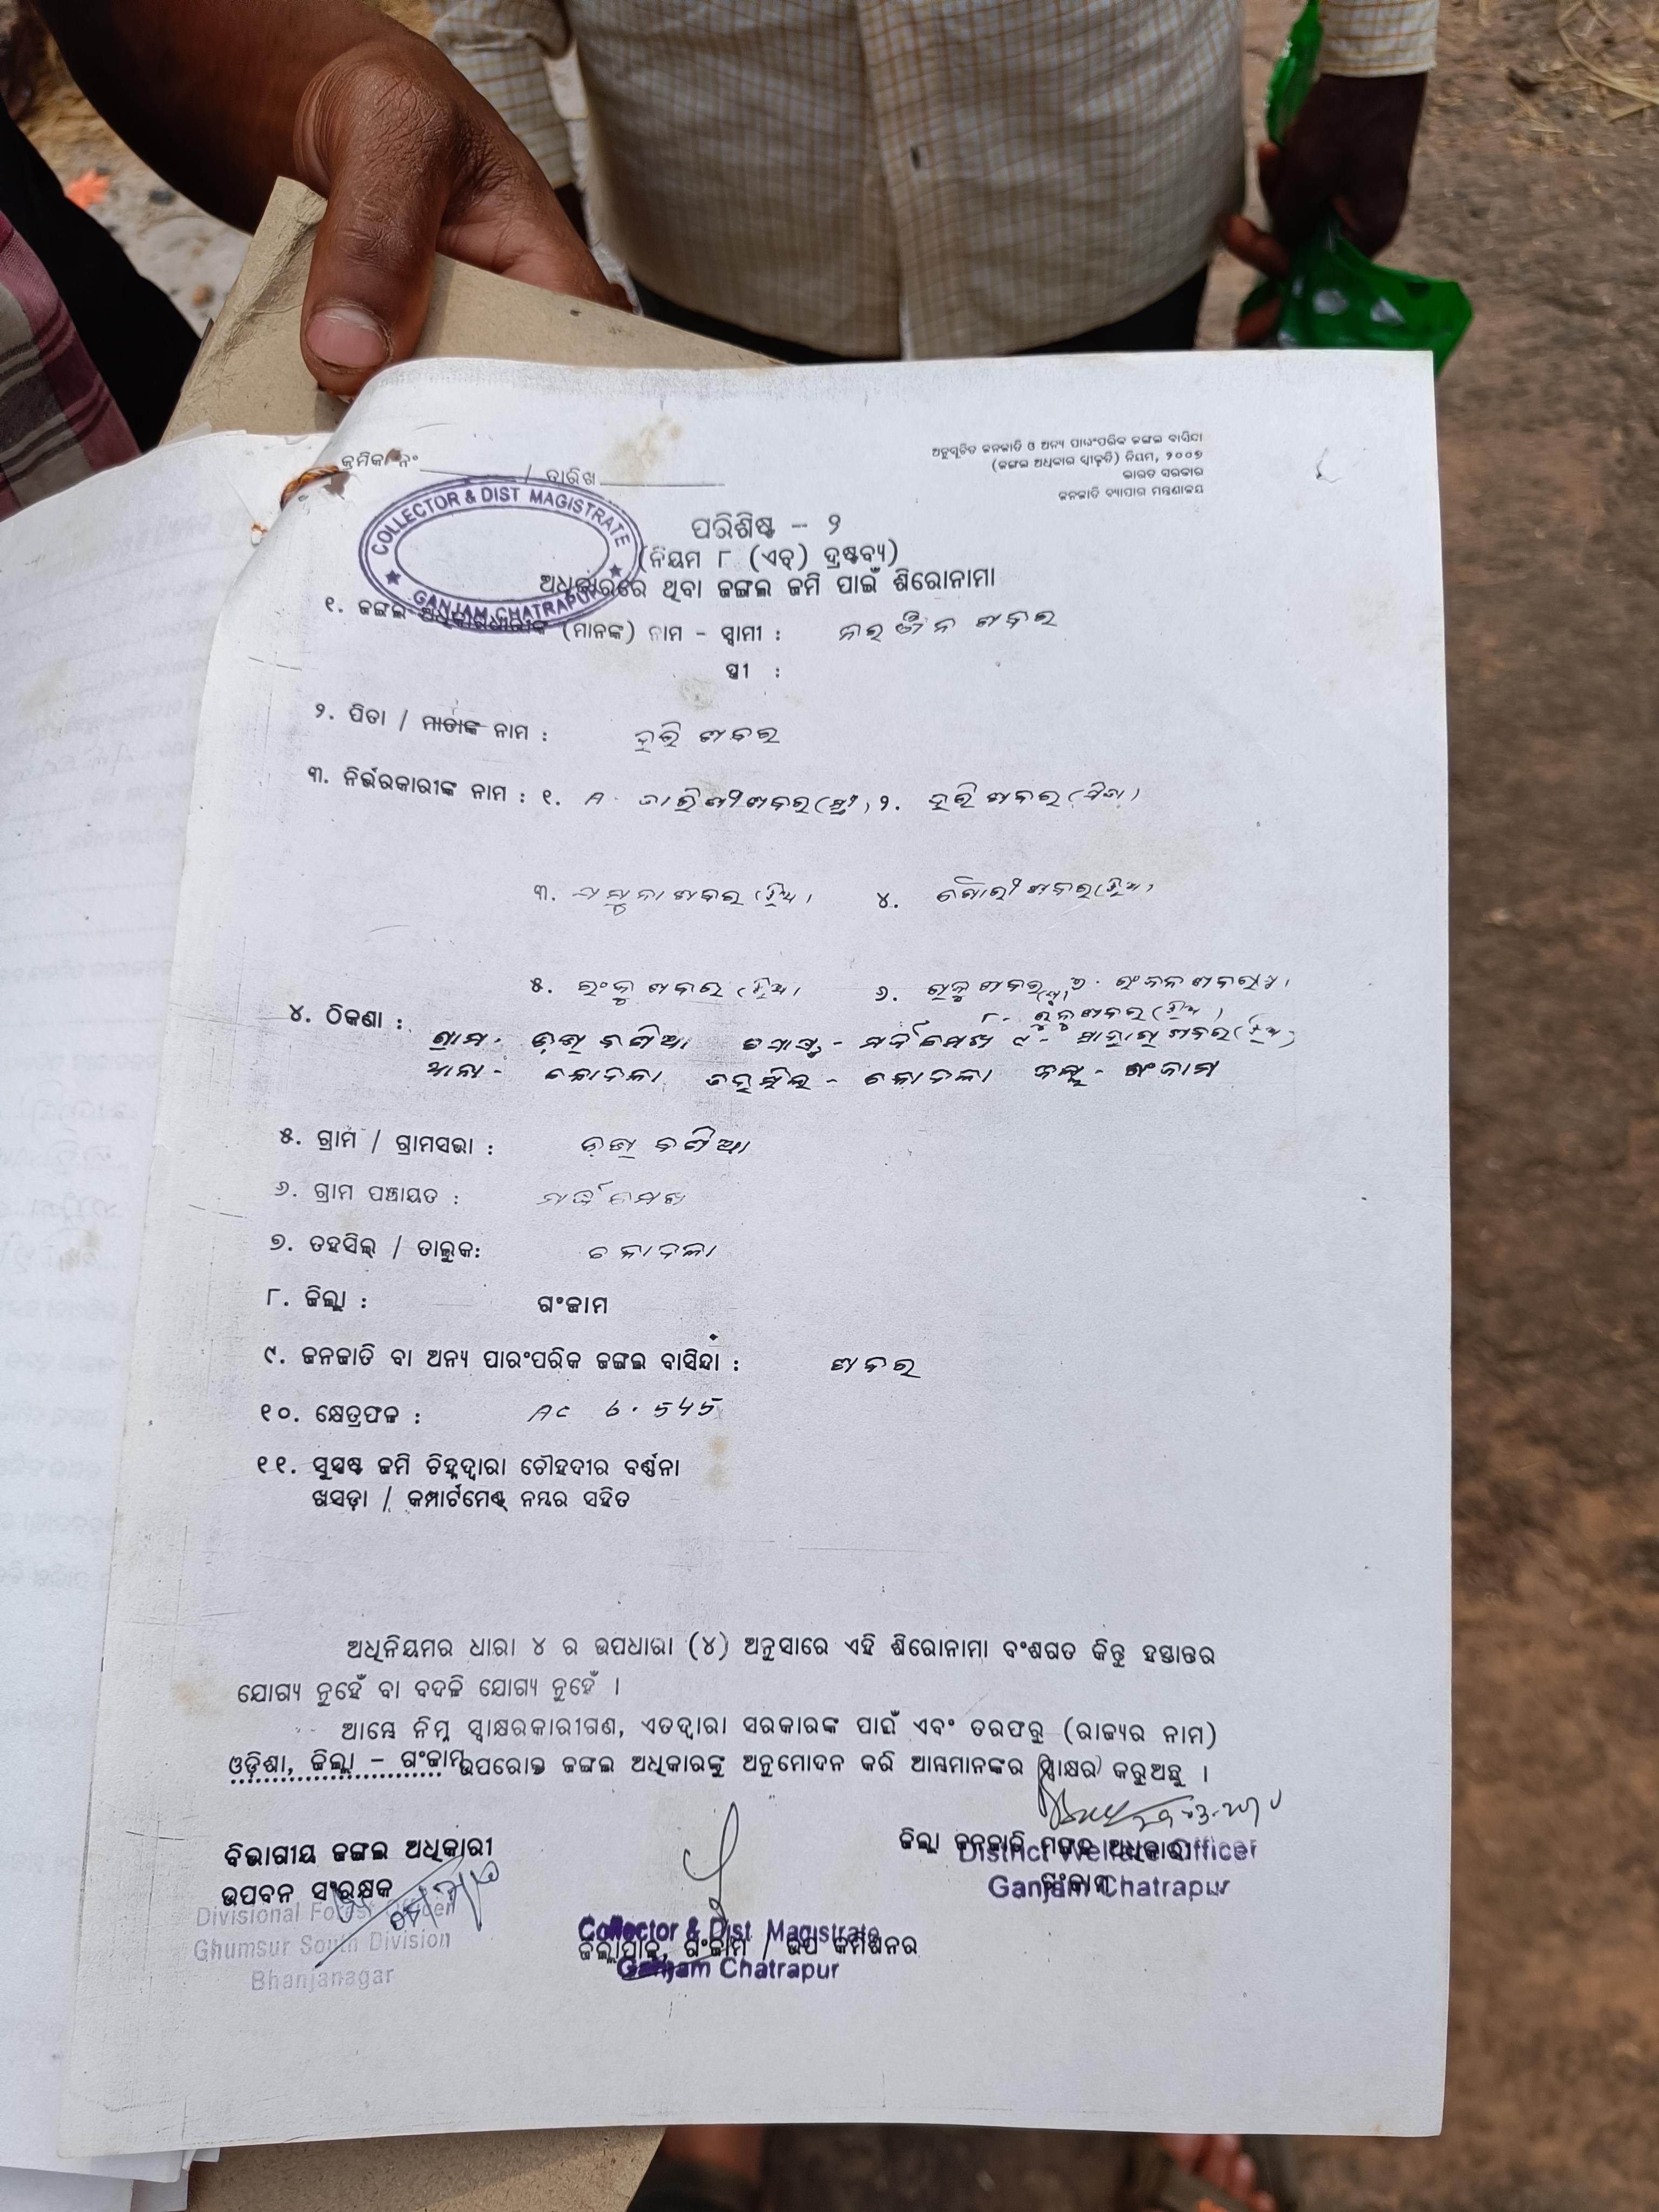 କ୍ରମିକ ନଂ ________ / ତାରିଖ ________
ଅନୁସୂଚିତ ଜନଜାତି ଓ ଅନ୍ୟ ପାରଂପରିକ ଜଙ୍ଗଲ ବାସିନ୍ଦା
(ଜଙ୍ଗଲ ଅଧିକାର ସ୍ୱୀକୃତି) ନିୟମ, ୨୦୦୭
ଭାରତ ସରକାର
ଜନଜାତି ବ୍ୟାପାର ମନ୍ତ୍ରଣାଳୟ
COLLECTOR & DIST MAGISTRATE
GANJAM CHATRAPUR
ପରିଶିଷ୍ଟ - ୨
(ନିୟମ ୮ (ଏଚ୍) ଦ୍ରଷ୍ଟବ୍ୟ)
ଅଧିକାରରେ ଥିବା ଜଙ୍ଗଲ ଜମି ପାଇଁ ଶିରୋନାମା
୧. ଜଙ୍ଗଲ ଅଧିକାରଧାରୀଙ୍କ (ମାନଙ୍କ) ନାମ - ସ୍ୱାମୀ : ଶବର
ସ୍ତ୍ରୀ :
୨. ପିତା / ମାତାଙ୍କ ନାମ : ହରି ଶବର
୩. ନିର୍ଭରକାରୀଙ୍କ ନାମ : ୧. A. ତାରିଣୀ ଶବର (ସ୍ତ୍ରୀ) ୨. ହରି ଶବର (ପିତା)
୩. ଯମୁନା ଶବର (ଝିଅ) ୪. ଗୌରୀ ଶବର (ଝିଅ)
୫. ଶବର (ଝିଅ) ୬. ଶବର
୮. ଶବର (ଝିଅ)
୪. ଠିକଣା : ଗ୍ରାମ - ପୋଷ୍ଟ - ୯ - ଶବର (ଝିଅ)
ଥାନା - କୋଦଳା ତହସିଲ - କୋଦଳା ଜିଲ୍ଲା - ଗଂଜାମ
୫. ଗ୍ରାମ / ଗ୍ରାମସଭା :
୬. ଗ୍ରାମ ପଞ୍ଚାୟତ :
୭. ତହସିଲ୍ / ତାଲୁକ: କୋଦଳା
୮. ଜିଲ୍ଲା : ଗଂଜାମ
୯. ଜନଜାତି ବା ଅନ୍ୟ ପାରଂପରିକ ଜଙ୍ଗଲ ବାସିନ୍ଦା : ଶବର
୧୦. କ୍ଷେତ୍ରଫଳ : Ac 6.545
୧୧. ସୁସ୍ପଷ୍ଟ ଜମି ଚିହ୍ନଦ୍ୱାରା ଚୌହଦୀର ବର୍ଣ୍ଣନା
ଖସଡ଼ା / କମ୍ପାର୍ଟମେଣ୍ଟ୍ ନମ୍ବର ସହିତ
ଅଧିନିୟମର ଧାରା ୪ ର ଉପଧାରା (୪) ଅନୁସାରେ ଏହି ଶିରୋନାମା ବଂଶଗତ କିନ୍ତୁ ହସ୍ତାନ୍ତର
ଯୋଗ୍ୟ ନୁହେଁ ବା ବଦଳି ଯୋଗ୍ୟ ନୁହେଁ ।
ଆମ୍ଭେ ନିମ୍ନ ସ୍ୱାକ୍ଷରକାରୀଗଣ, ଏତଦ୍ୱାରା ସରକାରଙ୍କ ପାଇଁ ଏବଂ ତରଫରୁ (ରାଜ୍ୟର ନାମ)
ଓଡ଼ିଶା, ଜିଲ୍ଲା - ଗଂଜାମ ଉପରୋକ୍ତ ଜଙ୍ଗଲ ଅଧିକାରଙ୍କୁ ଅନୁମୋଦନ କରି ଆମ୍ଭମାନଙ୍କର ସ୍ୱାକ୍ଷର କରୁଅଛୁ ।
ବିଭାଗୀୟ ଜଙ୍ଗଲ ଅଧିକାରୀ
ଉପବନ ସଂରକ୍ଷକ
Divisional Forest Officer
Ghumsur South Division
Bhanjanagar
Collector & Dist. Magistrate
ଜିଲ୍ଲାପାଳ, ଗଂଜାମ / ଉପ କମିଶନର
Ganjam Chatrapur
ଜିଲ୍ଲା ଜନଜାତି ମଙ୍ଗଳ ଅଧିକାରୀ
District Welfare Officer
ଗଂଜାମ
Ganjam Chatrapur